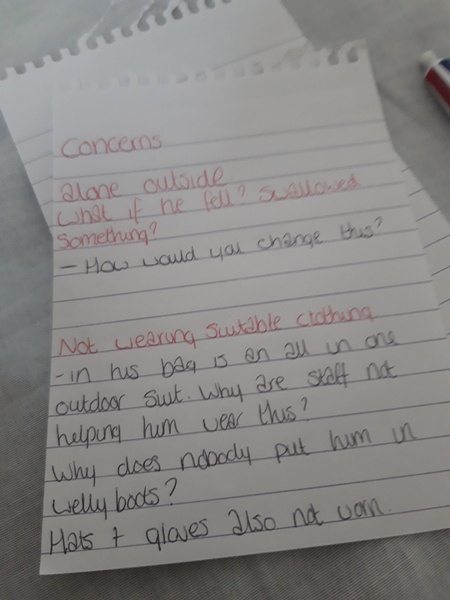 Concerns
alone outside
What if he fell? Swallowed
Something?
- How would you change this?
Not wearing suitable clothing
- in his bag is an all in one
outdoor suit. Why are staff not
helping him wear this?
Why does nobody put him in
welly boots?
Hats + gloves also not worn.